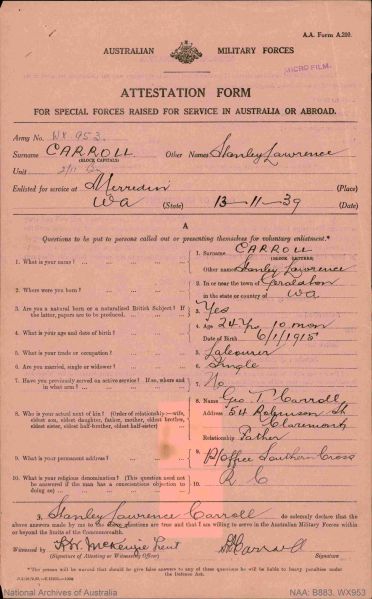 A.A. Form A.200.
AUSTRALIAN MILITARY FORCES
MICRO FILM.
ATTESTATION FORM
FOR SPECIAL FORCES RAISED FOR SERVICE IN AUSTRALIA OR ABROAD.
Army No. WX 953
Surname CARROLL Other Names Stanley Lawrence
(BLOCK CAPITALS)
Unit 2/11 Bn
Enlisted for service at Merredin (Place)
WA (State) 13-11-39 (Date)
A
Questions to be put to persons called out or presenting themselves for voluntary enlistment.*
1. What is your name? 1. Surname CARROLL
(BLOCK LETTERS)
Other names Stanley Lawrence
2. Where were you born? 2. In or near the town of Geraldton
in the state or country of WA
3. Are you a natural born or a naturalized British Subject? If the latter, papers are to be produced. 3. Yes
4. What is your age and date of birth? 4. Age 24 Yrs 10 mon
Date of Birth 6/1/1915
5. What is your trade or occupation? 5. Labourer
6. Are you married, single or widower? 6. Single
7. Have you previously served on active service? If so, where and in what arm? 7. No
8. Who is your actual next of kin? (Order of relationship—wife, eldest son, eldest daughter, father, mother, eldest brother, eldest sister, eldest half-brother, eldest half-sister) 8. Name Geo T Carroll
Address 54 Robinson St
Claremont
Relationship Father
9. What is your permanent address? 9. P/Office Southern Cross
10. What is your religious denomination? (This question need not be answered if the man has a conscientious objection to doing so) 10. R C
I, Stanley Lawrence Carroll do solemnly declare that the
above answers made by me to the above questions are true and that I am willing to serve in the Australian Military Forces within
or beyond the limits of the Commonwealth.
Witnessed by McKenzie Lieut S L Carroll
(Signature of Attesting or Witnessing Officer) (Signature)
*The person will be warned that should he give false answers to any of these questions he will be liable to heavy penalties under
the Defence Act.
National Archives of Australia NAA: B883, WX953